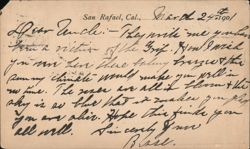 San Rafael, Cal., March 25th 1901
Dear Uncle:- They write me you have
been a victim of the Grip. How I wish
you were here these balmy breezes & this
sunny climate would make you well in
no time. The roses are all in bloom & the
sky is so blue that it makes you glad
you are alive. Hope this finds you
all well. Sincerely & ever